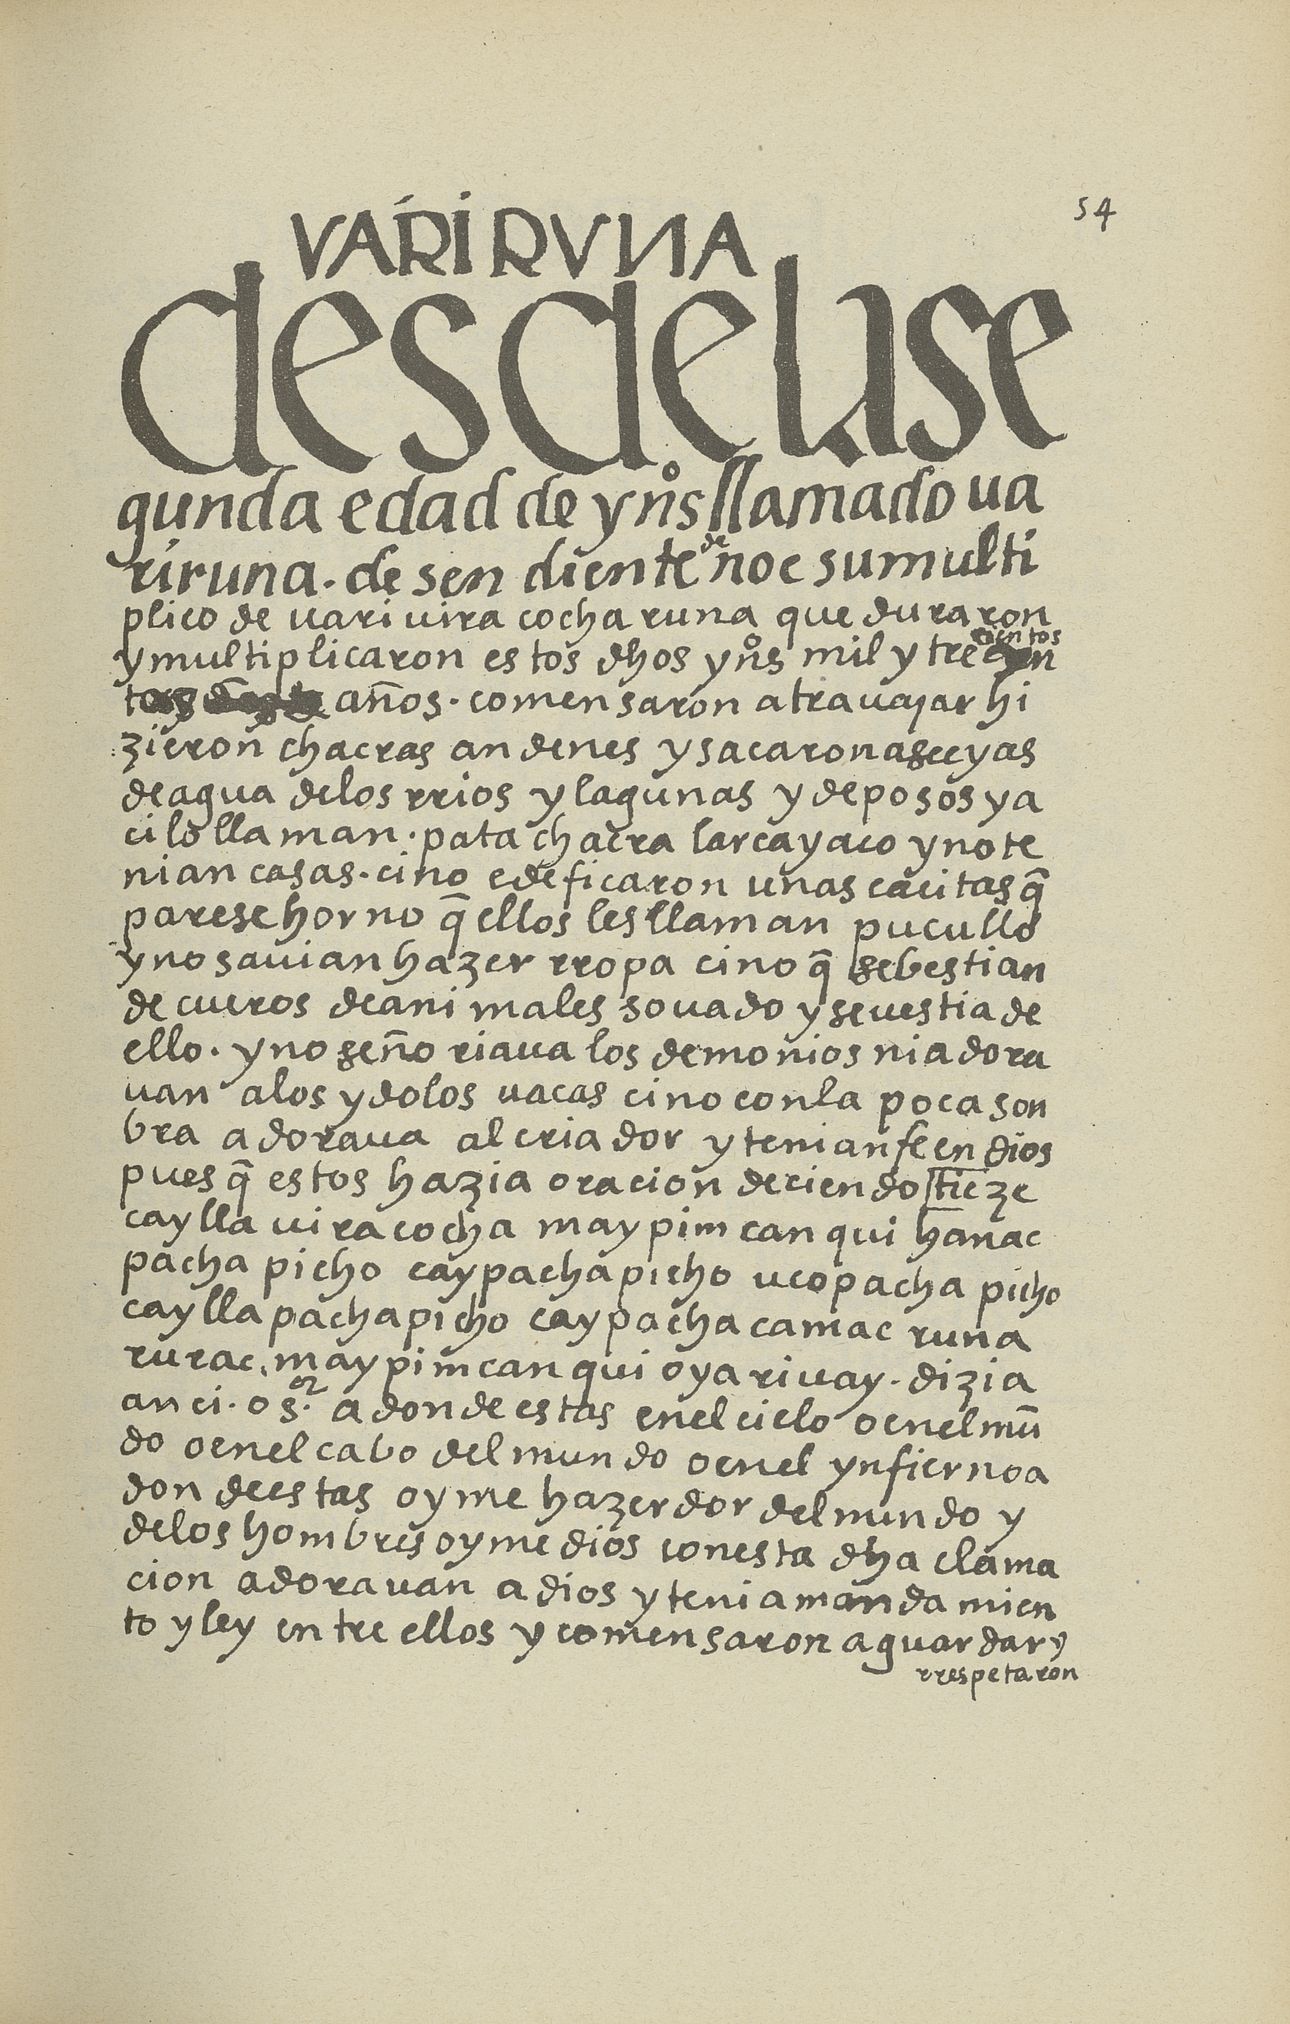 54
VARI RVNA
desde la se
gunda edad de ynºs llamado ua
riruna. de sen diente de noe su multi
plico de uari uira cocha runa que duraron
y multiplicaron estos dhos ynºs mil y tre cientos
años. comensaron a trauajar hi
zieron chacras andenes y sacaron aseeyas
de agua de los rrios y lagunas y de posos y a
ci lo llaman. pata chacra larca yaco y no te
nian casas. cino edeficaron unas cacitas q̃
parese horno q̃ ellos les llaman pucullo
y no sauian hazer rropa cino q̃ se bestian
de cueros de animales souado y se uestia de
ello. y no señoriaua los demonios ni adora
uan a los ydolos uacas cino con la poca son
bra adoraua al criador y tenian fe en dios
pues q̃ estos hazia oracion deciendo ticze
caylla uiracocha maypim canqui hanac
pacha picho caypacha picho ucopacha picho
caylla pacha picho cay pacha camac runa
rurac. maypim canqui oyariuay. dizia
anci. o s.or a donde estas en el cielo o en el mũ
do o en el cabo del mundo o en el ynfierno a
donde estas oyme hazerdor del mundo y
de los hombres oyme dios con esta dha clama
cion adorauan a dios y tenia mandamien
to y ley entre ellos y comensaron a guardar y
rrespetaron